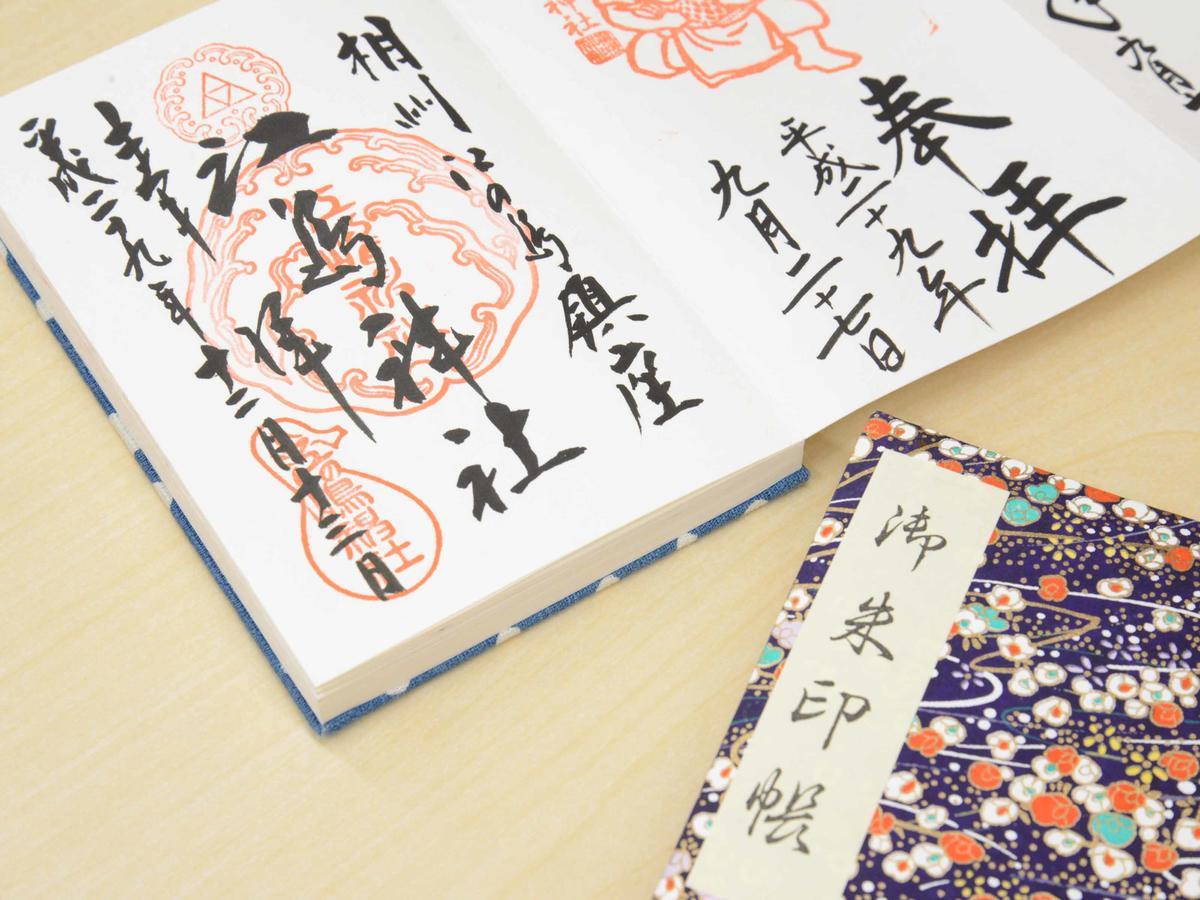 奉拝
平成二十九年
九月二十七日
神社
相州江の島鎮座
江島神社
奉拝
平成二十九年十二月十三日
御朱印帳